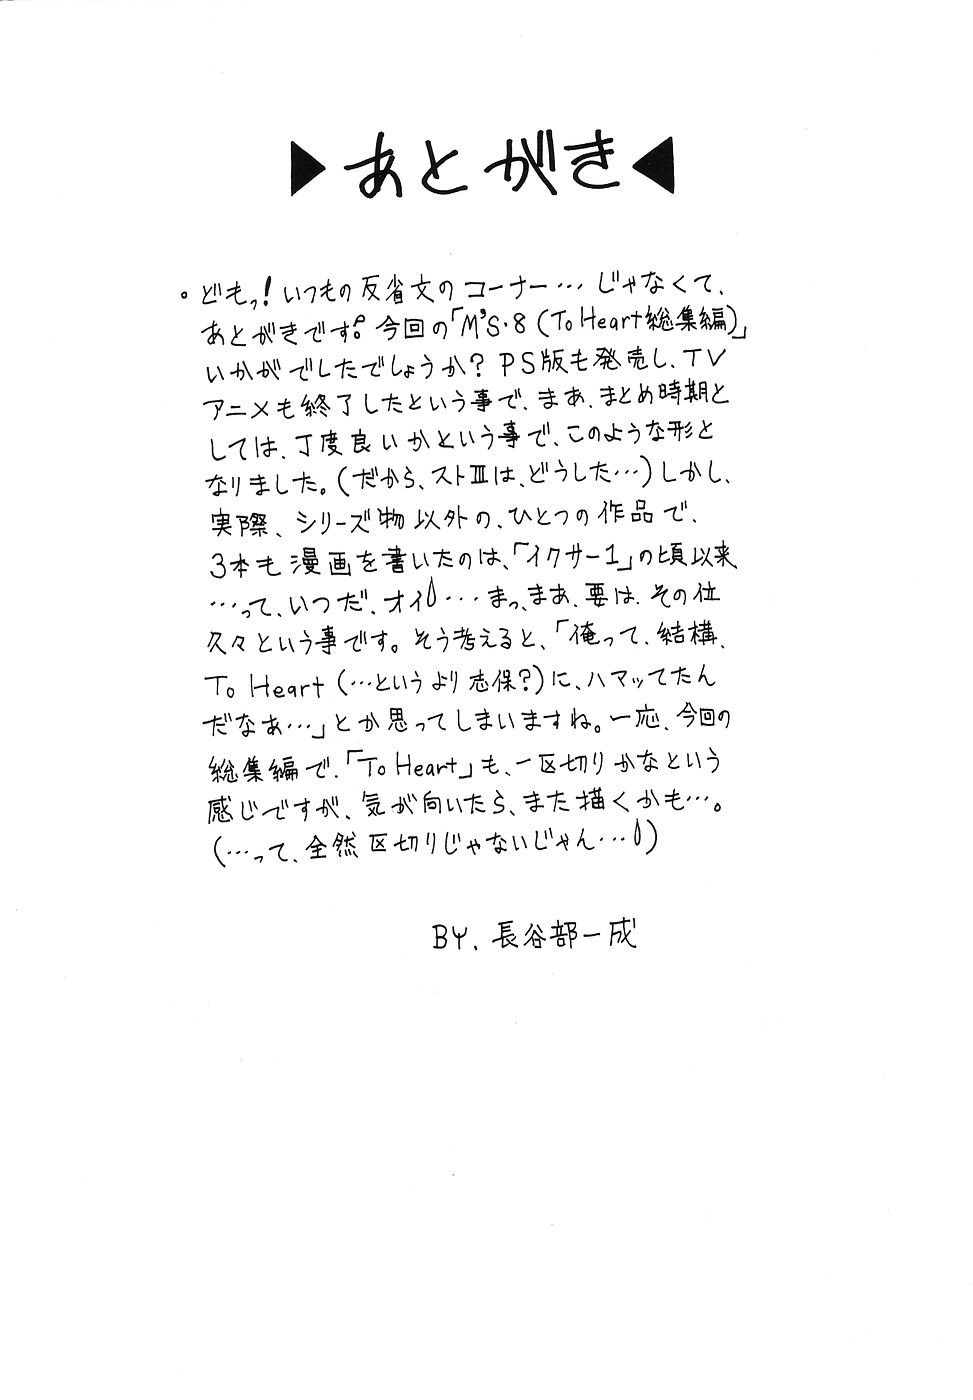 ▶あとがき◀
。どもっ!いつもの反省文のコーナー…じゃなくて、
あとがきです。今回の「M'S・8(To Heart総集編)」
いかがでしたでしょうか?PS版も発売し、TV
アニメも終了したという事で、まあ、まとめ時期と
しては、丁度良いかという事で、このような形と
なりました。(だから、ストⅢは、どうした…)しかし、
実際、シリーズ物以外の、ひとつの作品で、
3本も漫画を書いたのは、「イクサー1」の頃以来
…って、いつだ、オイ…まっ、まあ、要は、その位
久々という事です。そう考えると、「俺って、結構、
To Heart(…というより志保?)に、ハマッてたん
だなあ…」とか思ってしまいますね。一応、今回の
総集編で、「To Heart」も、一区切りかなという
感じですが、気が向いたら、また描くかも…。
(…って、全然区切りじゃないじゃん…)
BY. 長谷部一成